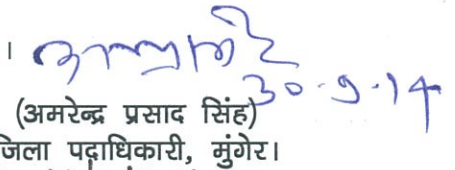 ।
30-9-14
(अमरेन्द्र प्रसाद सिंह)
जिला पदाधिकारी, मुंगेर।